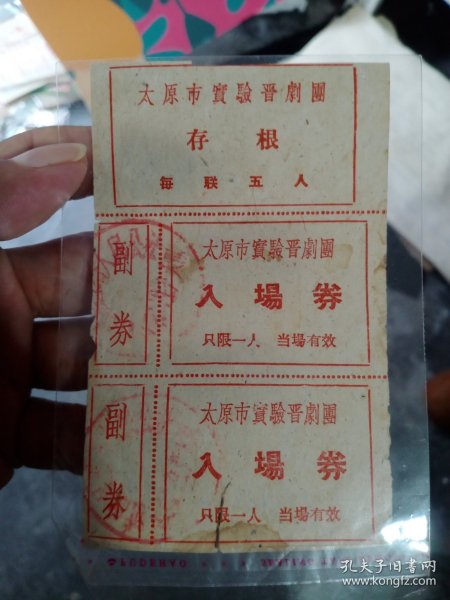 太原市實驗晋劇團
存根
每联五人
副券
太原市實驗晋劇團
入場券
只限一人 当場有效
副券
太原市實驗晋劇團
入場券
只限一人 当場有效
孔夫子旧书网
www.kongfz.com